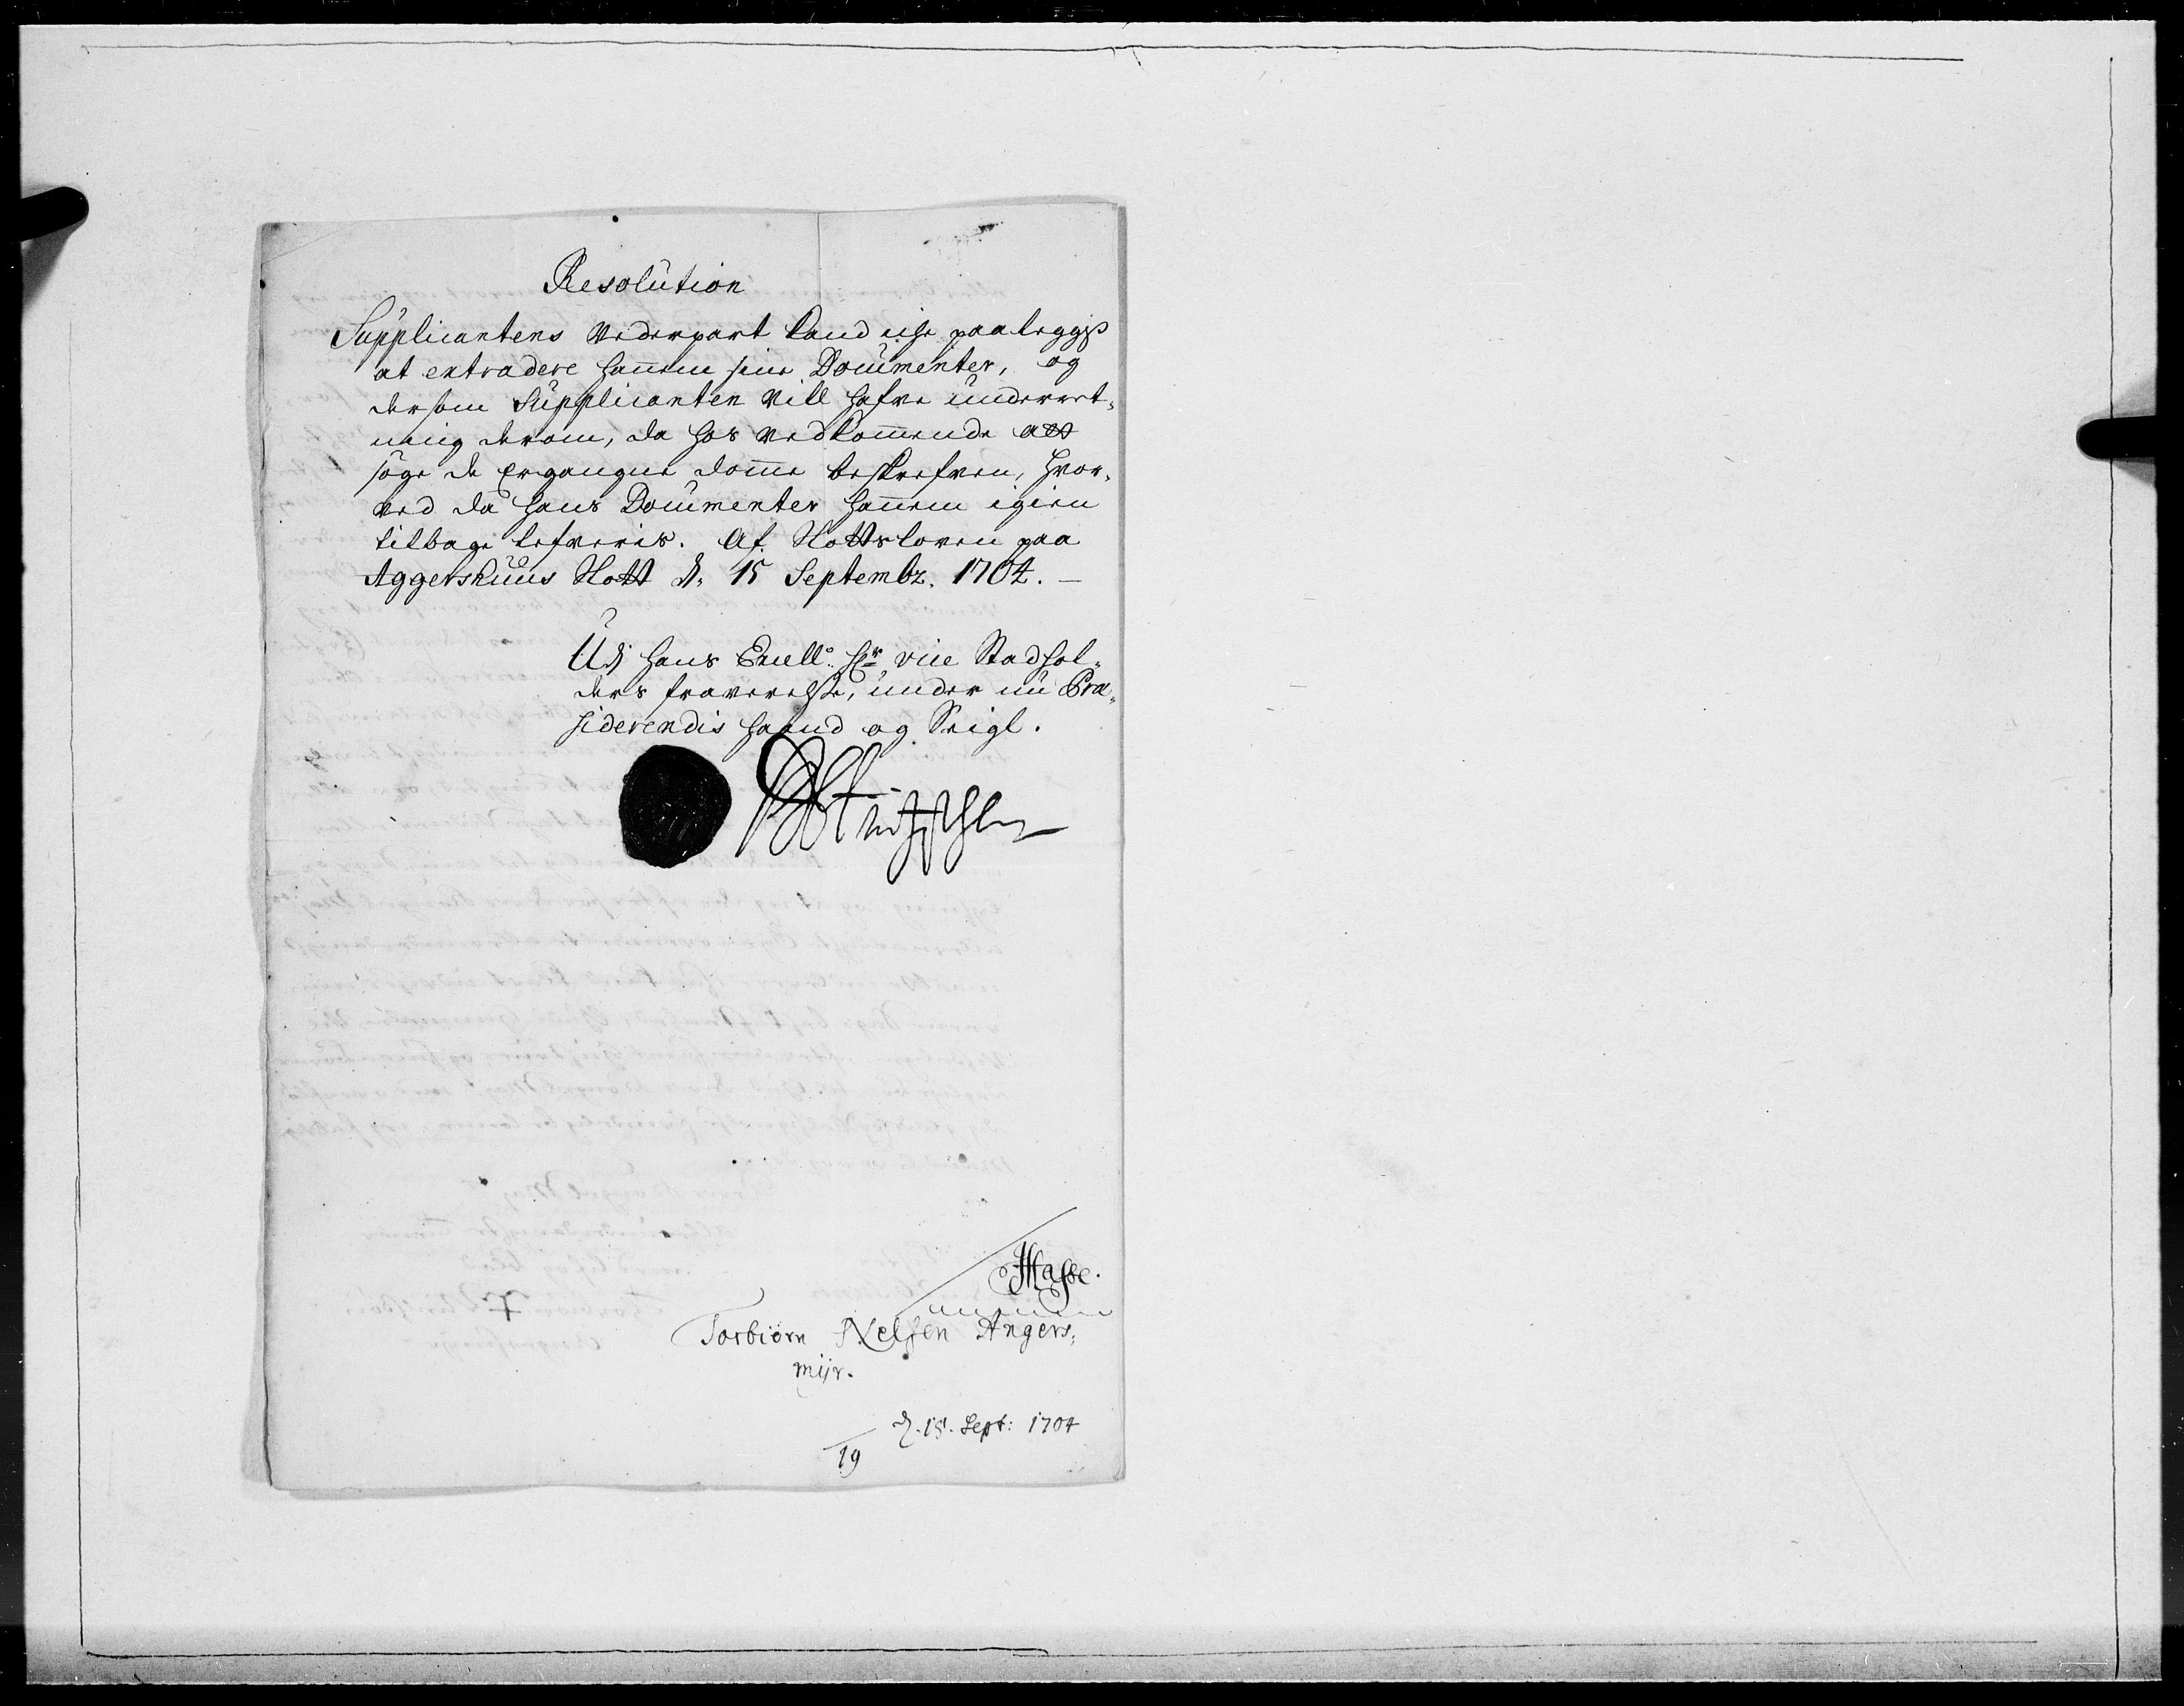 Resolution
Supplicantens Vederpart kand iche paaleggis
at extradere hannem sine Documenter, og
dersom Supplicanten Vill hafve underret¬
ning derom, da hos vedkommende att
søge de Ergangne domme beskrefven, hvor¬
ved da hans Documenter hannem igien
tilbage lefveris. Af Slottsloven paa
Aggershuus Slott d. 15 Septembr. 1704.
Udj hans Excell: Hr vice Stadhol¬
ders fraverelse, under nu Præ¬
siderendis haand og Seigl.
Hasse.
Torbiørn Nelsen Angers¬
mijr.
d. 15. Sept: 1704
19